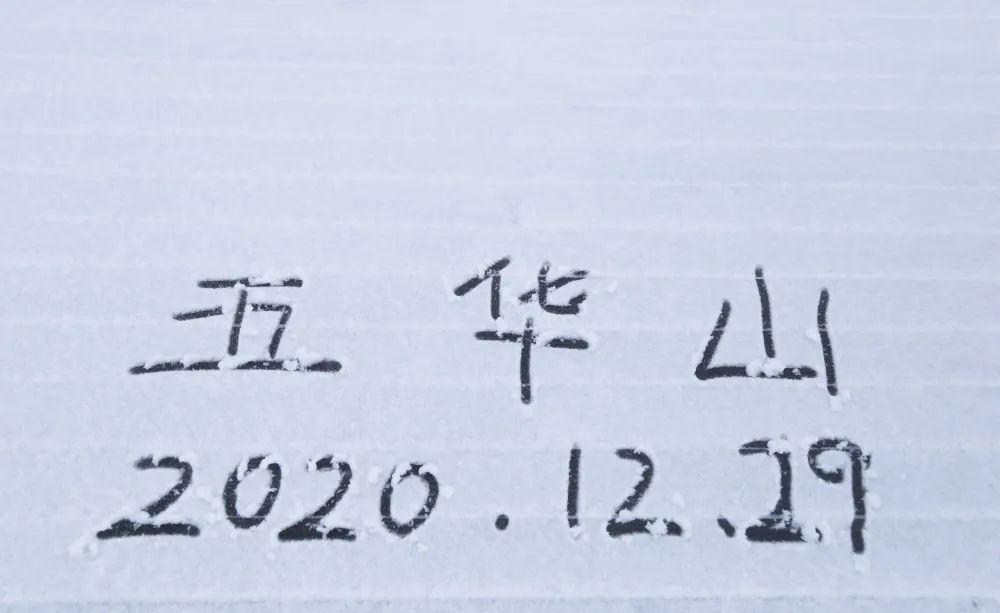 五华山
2020.12.29